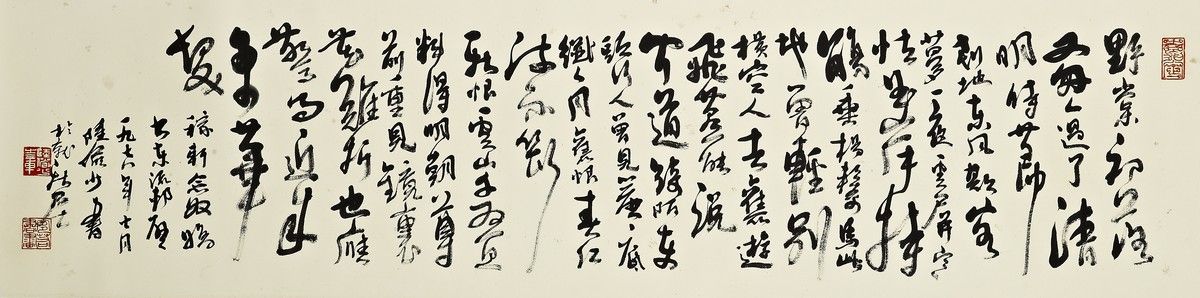 野棠花落
又匆匆過了清
明時節
剗地東風欺客
夢一夜雲屏寒
怯曲岸持
觴垂楊繫馬此
地曾輕別
樓空人去舊遊
飛燕能說
聞道綺陌東
頭行人曾見簾底
纖纖月舊恨春江
流不斷
新恨雲山千疊
料得明朝尊
前重見鏡裏
花難折也應
驚問近來
多少華
髮
稼軒念奴嬌
書東流邨壁
一九七八年十一月
陸儼少書